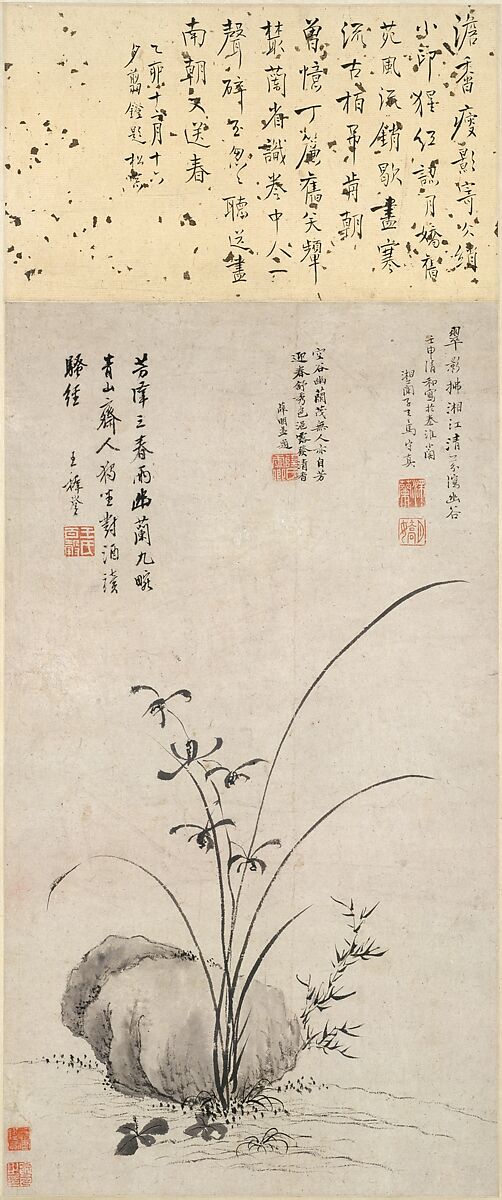 澹香瘦影寄冰綃
小印猩紅認月嬌舊
苑風流銷歇盡寒
流古柏弔前朝
曾憶丁簾舊笑顰
叢蘭省識卷中人一
聲碎玉忽忽聽送盡
南朝又送春
乙卯十二月十六
夕翦鐙題
翠影拂湘江清芬瀉幽谷
壬申清和寫於秦淮小閣
湘蘭子馬守真
月嬌
空谷幽蘭茂無人亦自芳
迎春舒秀色浥露發清香
薛明益題
芳澤三春雨幽蘭九畹
青山齋人獨坐對酒讀
騷經
王穉登
王氏百穀